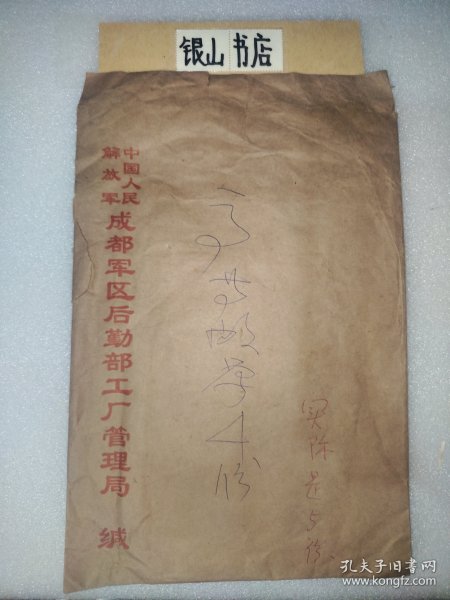 银山书店
中国人民
解放军
成都军区后勤部工厂管理局 缄
实际是5份
孔夫子旧书网
www.kongfz.com